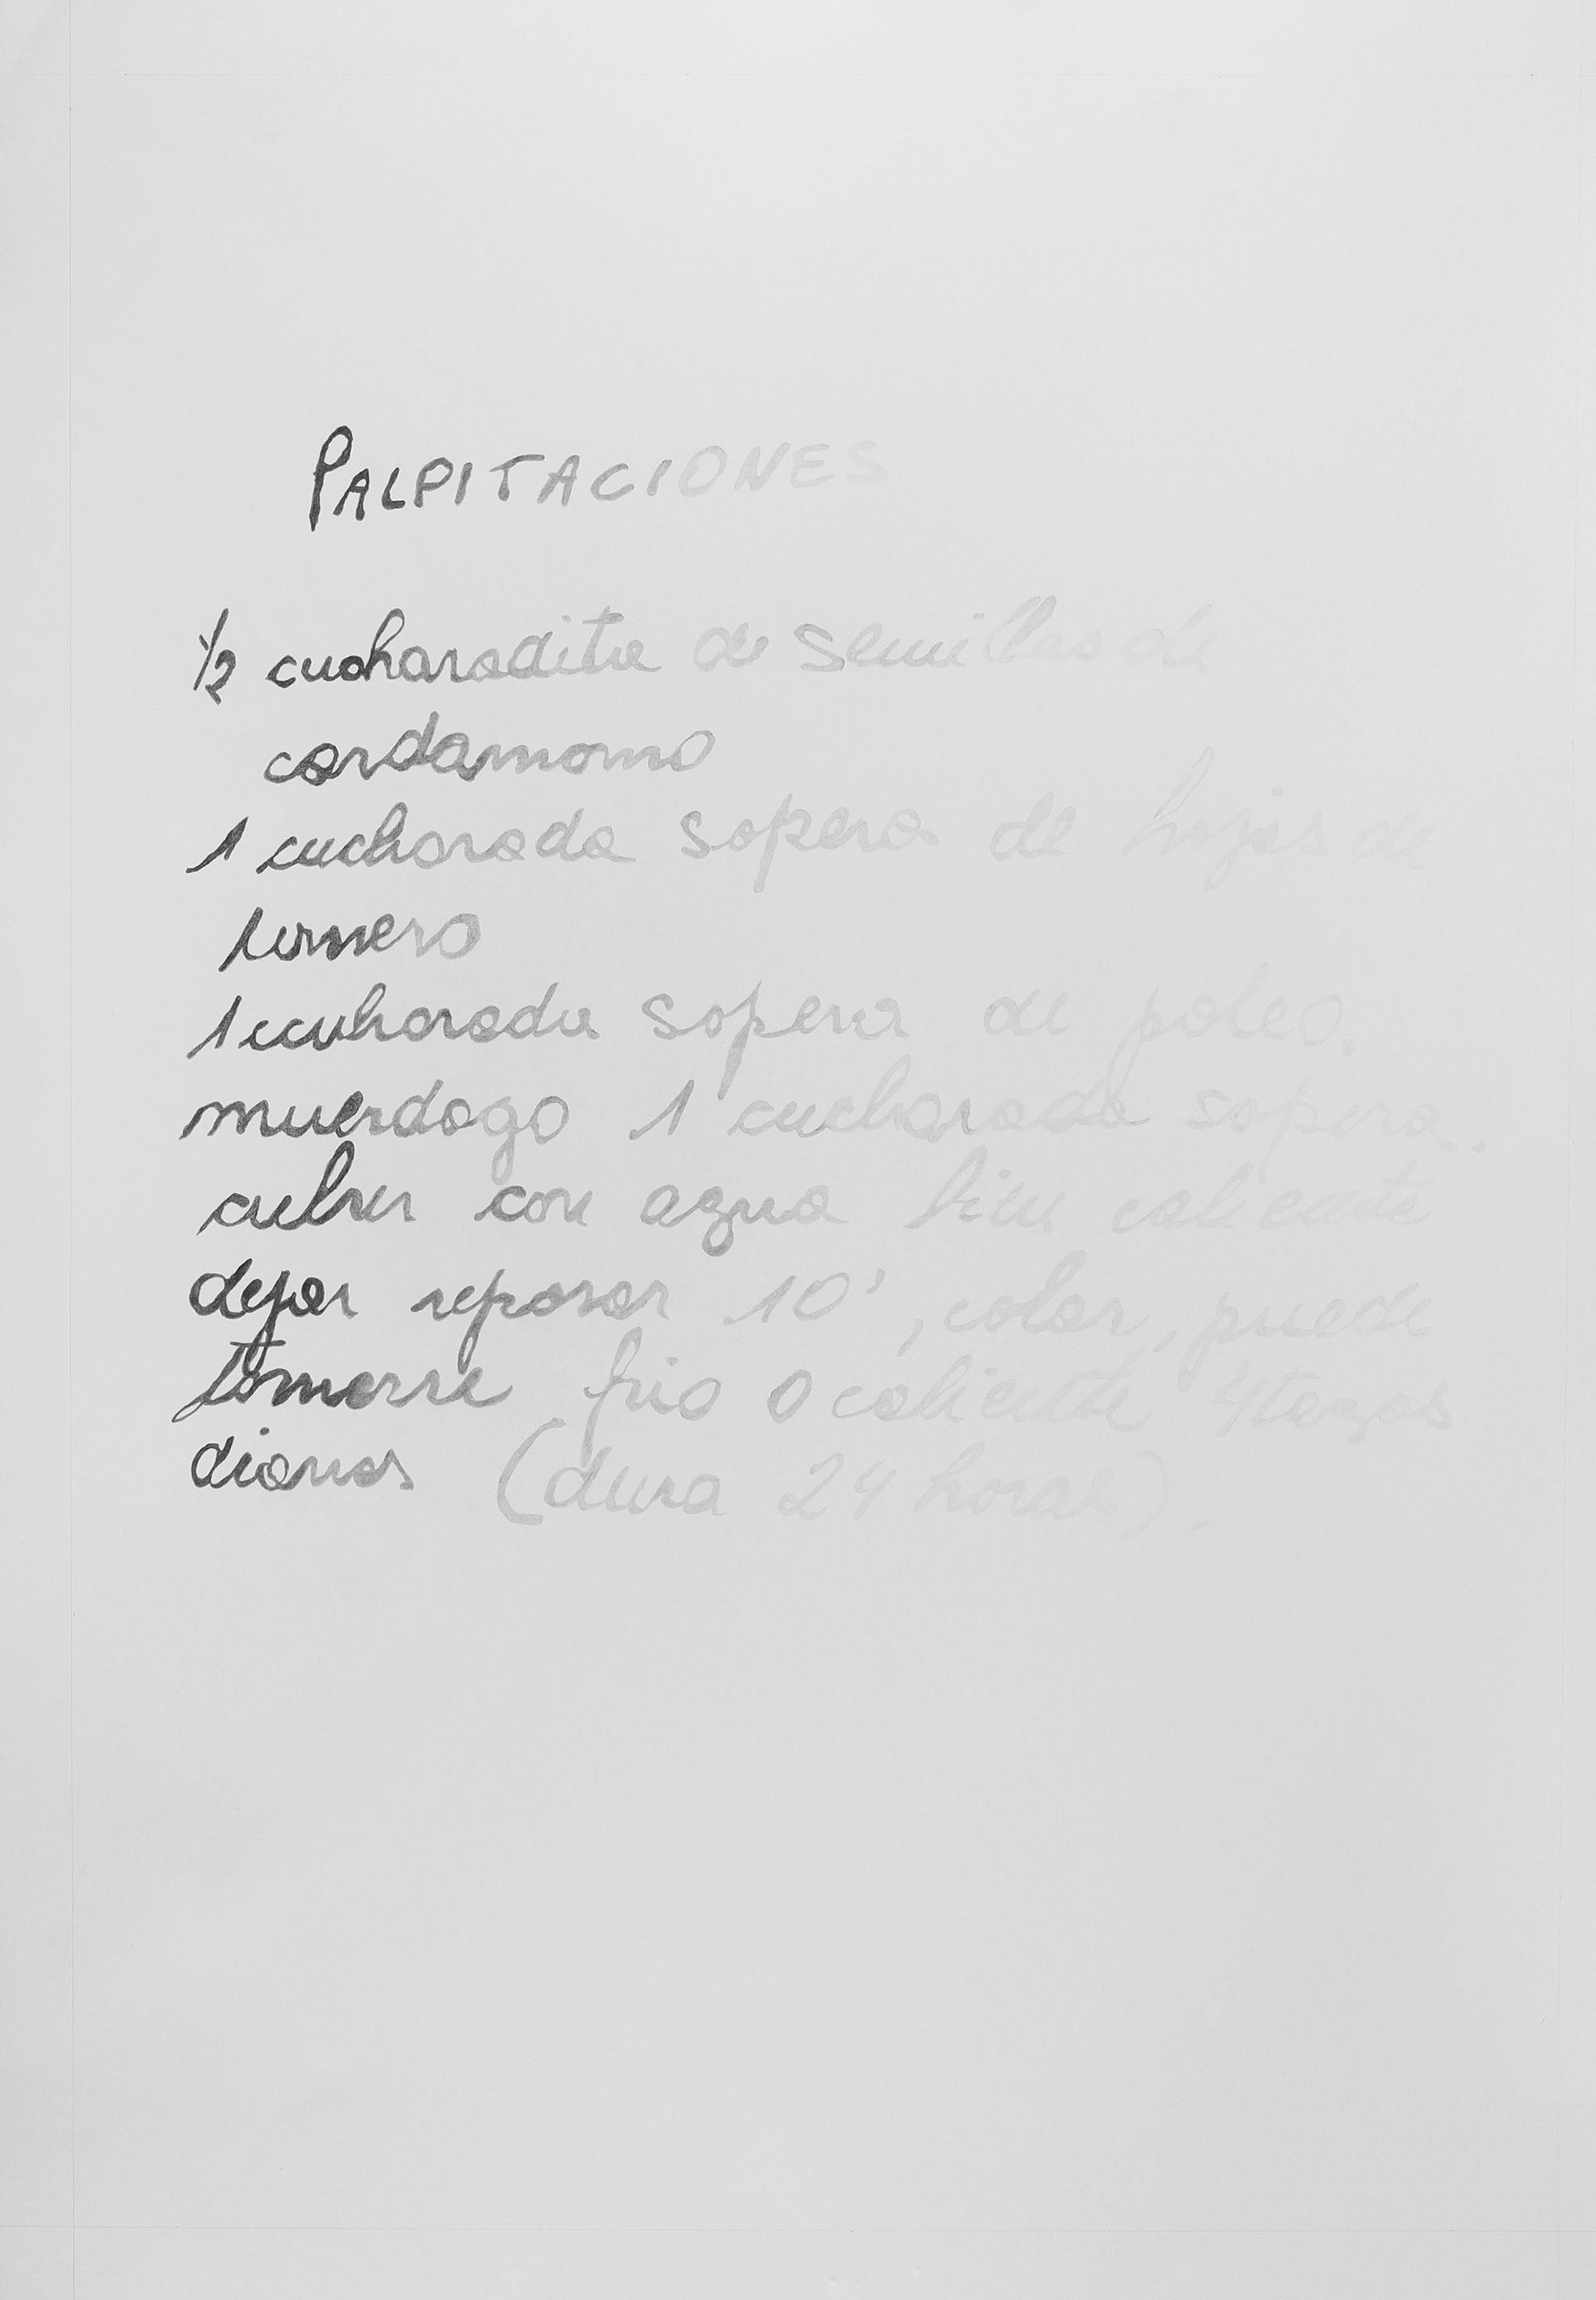 PALPITACIONES
1/2 cucharadita de semillas de
cardamomo
1 cucharada sopera de hojas de
romero
1 cucharada sopera de poleo.
muerdago 1 cucharada sopera.
cubrir con agua bien caliente
dejar reposar 10', colar, puede
tomarse frio o caliente 4 tazas
diarias (dura 24 horas).